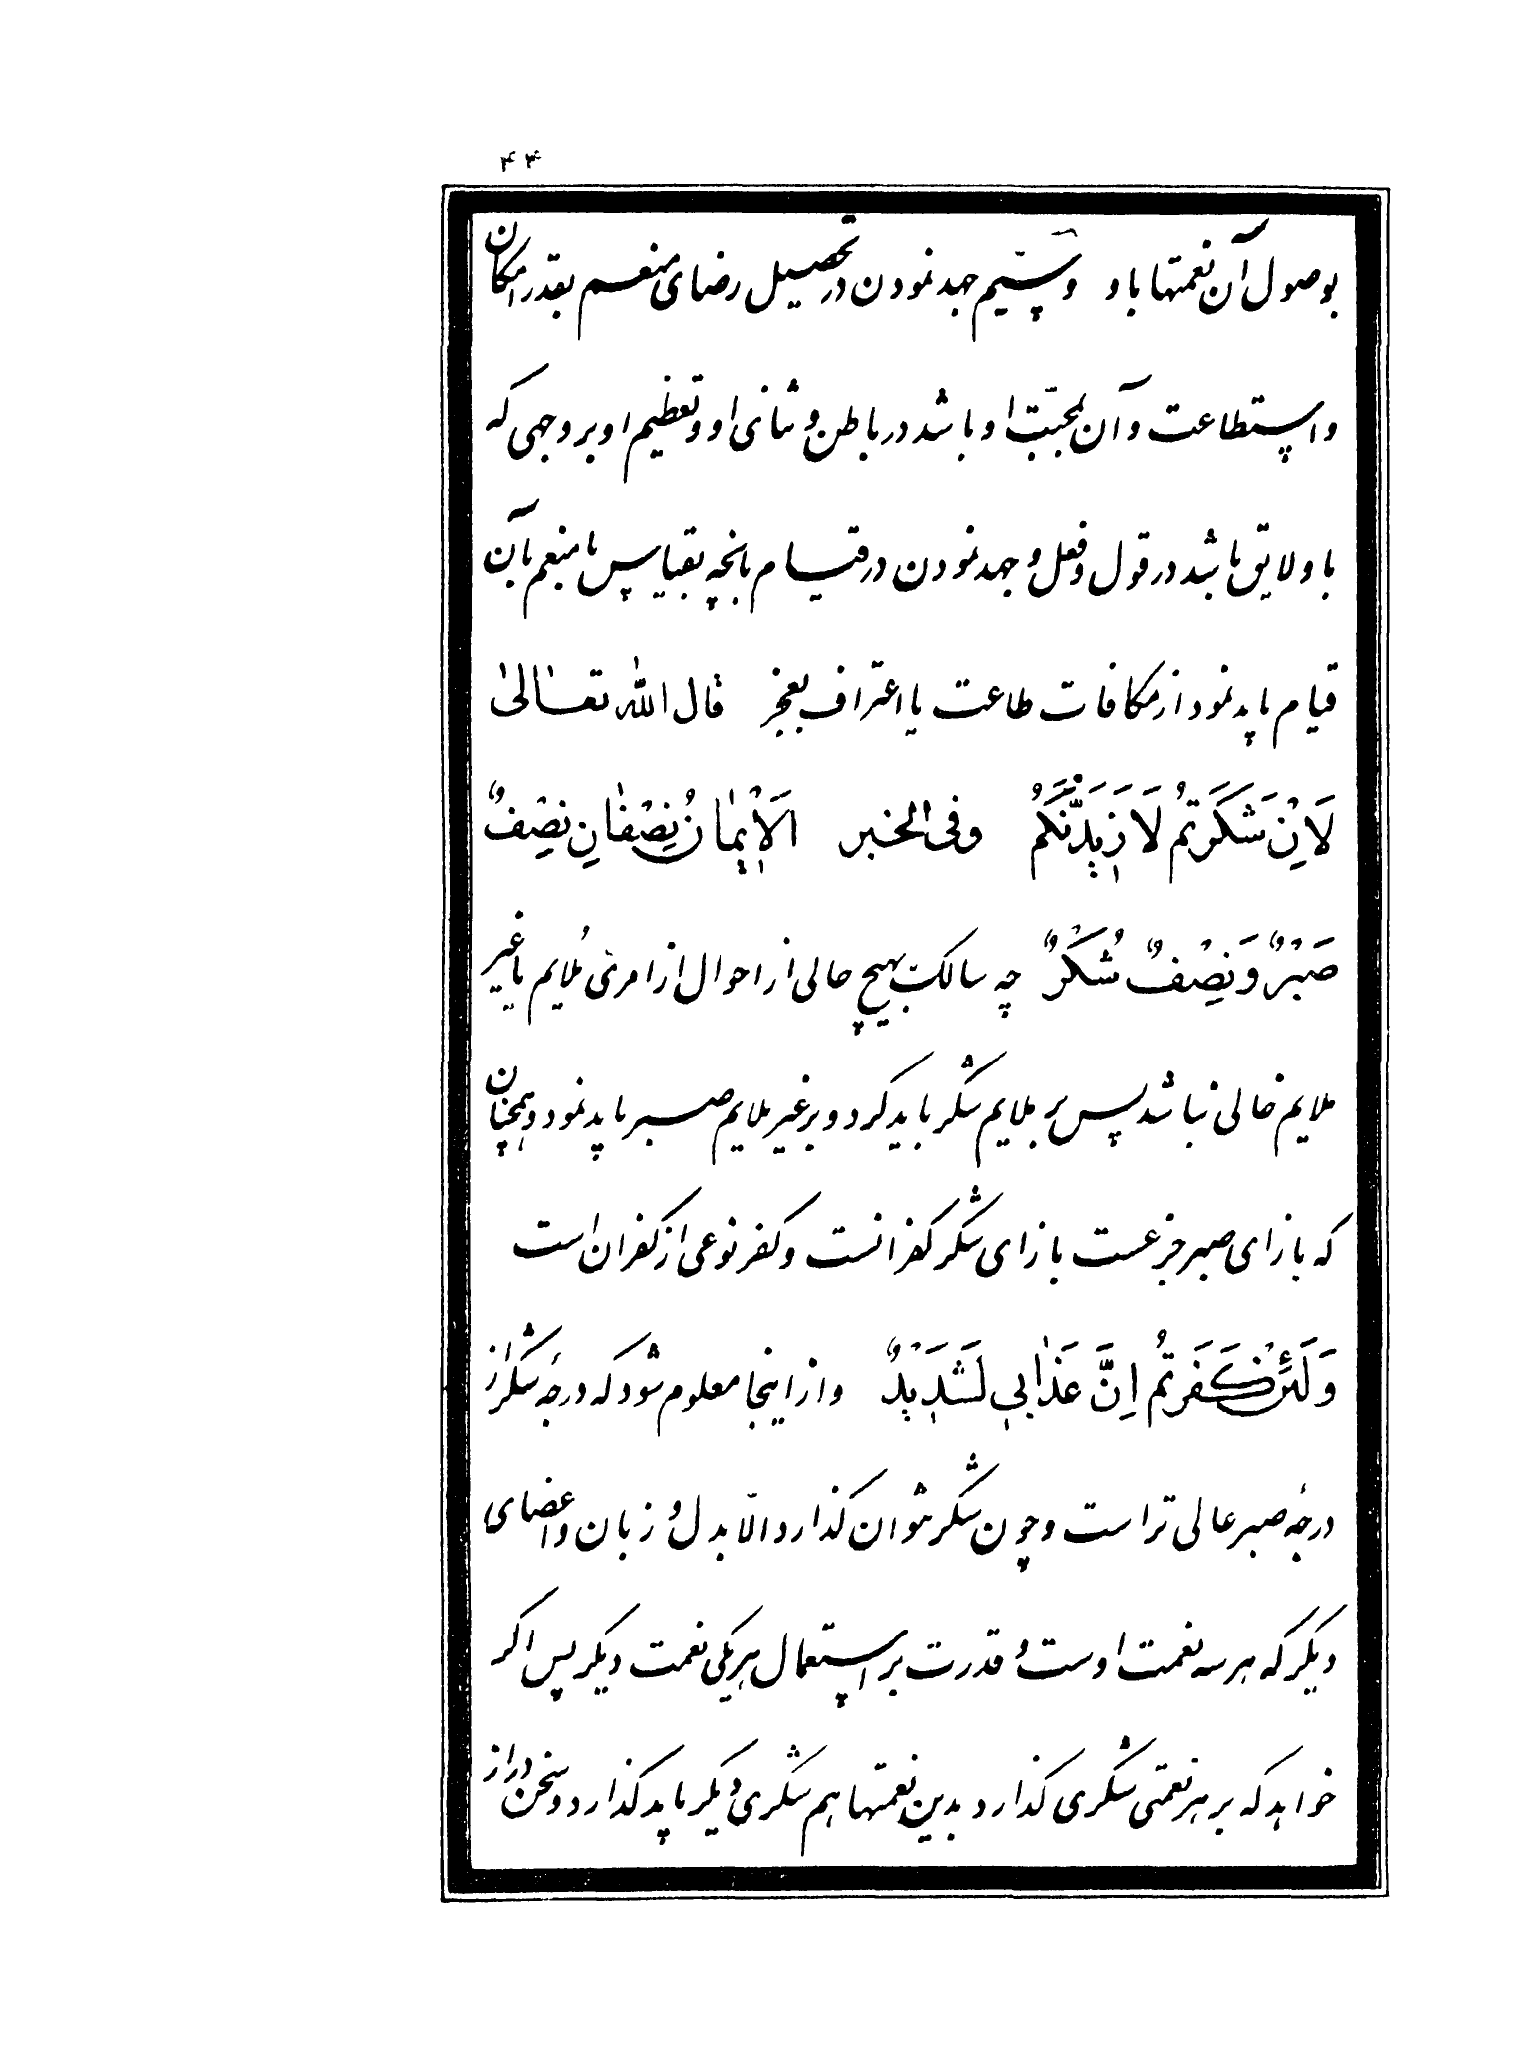 ۴۴
بوصول آن نعمتها باو و سیّم جهد نمودن در تحصیل رضای منعم بقدر امکان
و استطاعت و آن بمحبّت او باشد در باطن و ثنای او و تعظیم او بر وجهی که
باو لایق باشد در قول و فعل و جهد نمودن در قیام بانچه بقیاس با منعم بآن
قیام باید نمود از مکافات طاعت یا اعتراف بعجز قال الله تعالیٰ
لَاِنْ شَکَرَتُم لَاَزِیدَنَّکُم وفی الخبر الَاْیمٰانُ نِصْفٰانِ نِصْفٌ
صَبْرٌ وَ نِصْفٌ شُکْرٌ چه سالک بهیچ حالی از احوال از امری مُلایم یا غیر
ملایم خالی نباشد پس بر ملایم شکر باید کرد و بر غیر ملایم صبر باید نمود و همچنان
که بازای صبر جزعست بازای شکر کفرانست و کفر نوعی از کفران است
وَلَئِنْ کَفَرتُم اِنَّ عَذٰابی لَشَدیْدٌ و از اینجا معلوم شود که درجهٔ شکر از
درجهٔ صبر عالی تر است و چون شکر نتوان کذارد الّا بدل و زبان و اعضای
دیکر که هر سه نعمت اوست و قدرت بر استعمال هر یکی نعمت دیکر پس اکر
خواهد که بر هر نعمتی شکری کذارد بدین نعمتها هم شکری دیکر باید کذارد و سخن دراز